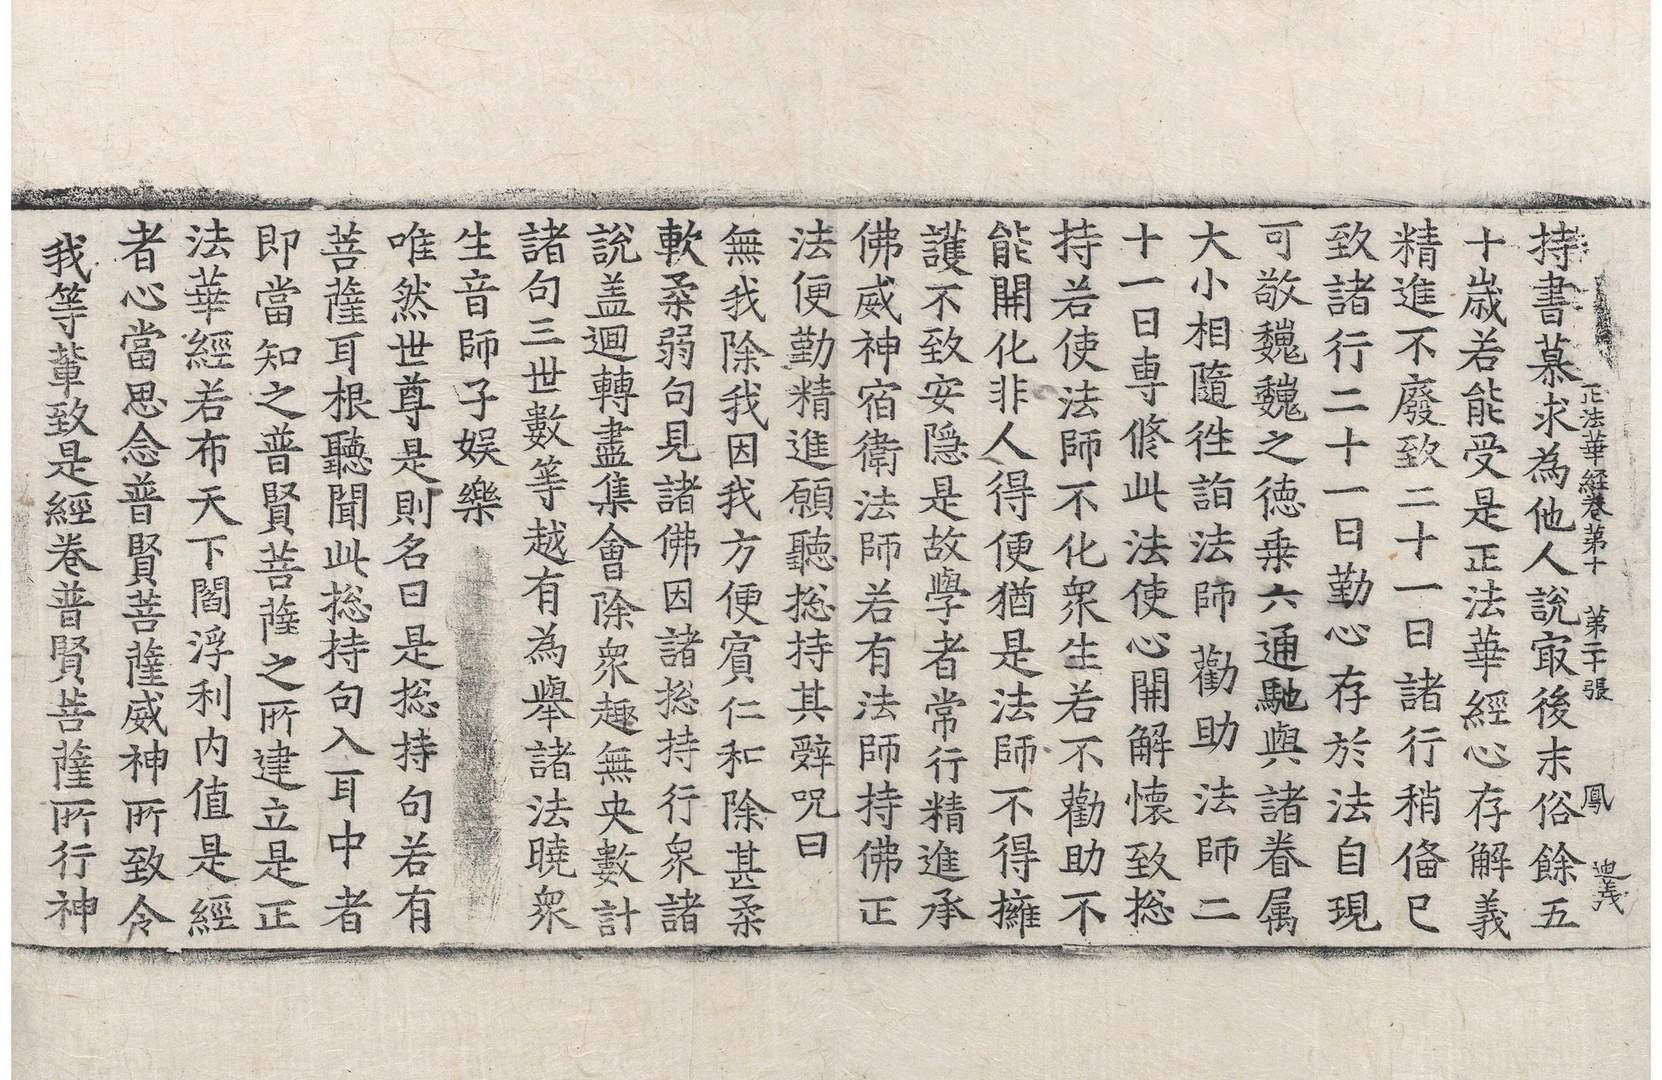 正法華經卷第十 第二十張 鳳 迪義
持書慕求為他人說㝡後末俗餘五
十歲若能受是正法華經心存解義
精進不廢致二十一日諸行稍俻已
致諸行二十一日勤心存於法自現
可敬魏魏之德乗六通馳與諸眷属
大小相隨徃詣法師勸助法師二
十一日専修此法使心開解懷致捴
持若使法師不化衆生若不勸助不
能開化非人得便猶是法師不得擁
護不致安隐是故學者常行精進承
佛威神宿衛法師若有法師持佛正
法便勤精進願聽捴持其辤呪曰
無我除我因我方便賔仁和除甚柔
軟柔弱句見諸佛因諸捴持行衆諸
說盖迴轉盡集會除衆趣無央數計
諸句三世數等越有為舉諸法曉衆
生音師子娯樂
唯然世尊是則名曰是捴持句若有
菩薩耳根聽聞此捴持句入耳中者
即當知之普賢菩薩之所建立是正
法華經若布天下閻浮利内值是經
者心當思念普賢菩薩威神所致令
我等軰致是經卷普賢菩薩所行神